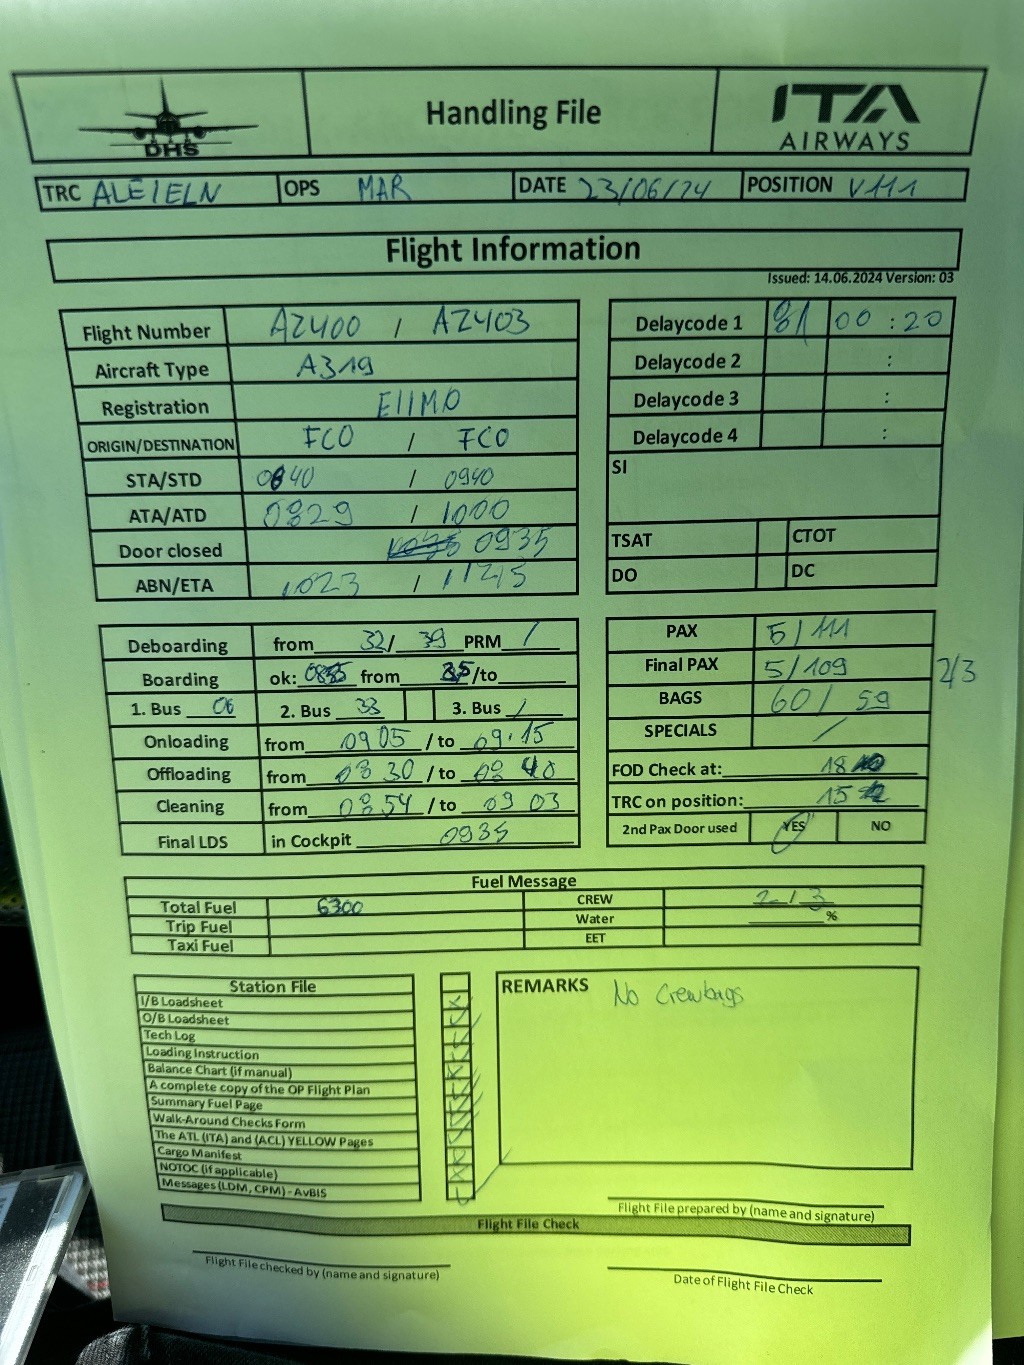 DHS
Handling File
ITA
AIRWAYS
TRC ALE/ELN OPS MAR DATE 23/06/24 POSITION V111
Flight Information
Issued: 14.06.2024 Version: 03
Flight Number AZ400 / AZ403
Aircraft Type A319
Registration EIIMO
ORIGIN/DESTINATION FCO / FCO
STA/STD 0840 / 0940
ATA/ATD 0829 / 1000
Door closed 0935
ABN/ETA 1023 /
Delaycode 1 81 00 : 20
Delaycode 2 :
Delaycode 3 :
Delaycode 4 :
SI
TSAT CTOT
DO DC
Deboarding from 32/ 39 PRM /
Boarding ok: from /to
1. Bus 06 2. Bus 33 3. Bus /
Onloading from 0905 / to 09.15
Offloading from 0830 / to 0840
Cleaning from 0854 / to 0903
Final LDS in Cockpit 0935
PAX 5/111
Final PAX 5/109 2/3
BAGS 60 / 59
SPECIALS /
FOD Check at: 18
TRC on position: 15
2nd Pax Door used YES NO
Fuel Message
Total Fuel 6300 CREW 2/3
Trip Fuel Water %
Taxi Fuel EET
Station File
I/B Loadsheet
O/B Loadsheet
Tech Log
Loading Instruction
Balance Chart (if manual)
A complete copy of the OP Flight Plan
Summary Fuel Page
Walk-Around Checks Form
The ATL (ITA) and (ACL) YELLOW Pages
Cargo Manifest
NOTOC (if applicable)
Messages (LDM, CPM) - AvBIS
REMARKS No Crewbags
Flight File prepared by (name and signature)
Flight File Check
Flight File checked by (name and signature)
Date of Flight File Check